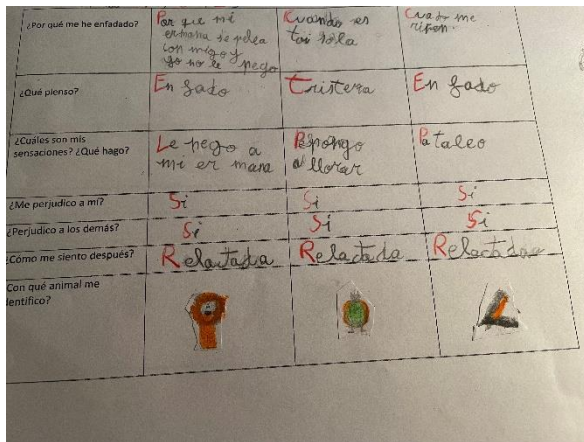 ¿Por qué me he enfadado?
Por que mi
ermana se pelea
con migo y
yo no le pego
Kuando es
toi sola
Cuado me
riñen.
¿Qué pienso?
En fado
Tristeza
En fado
¿Cuáles son mis
sensaciones? ¿Qué hago?
Le pego a
mi er mana
Me pongo
a llorar
Pataleo
¿Me perjudico a mí?
Si
Si
Si
¿Perjudico a los demás?
Si
Si
Si
¿Cómo me siento después?
Relactada
Relactada
Relactada
Con qué animal me
identifico?